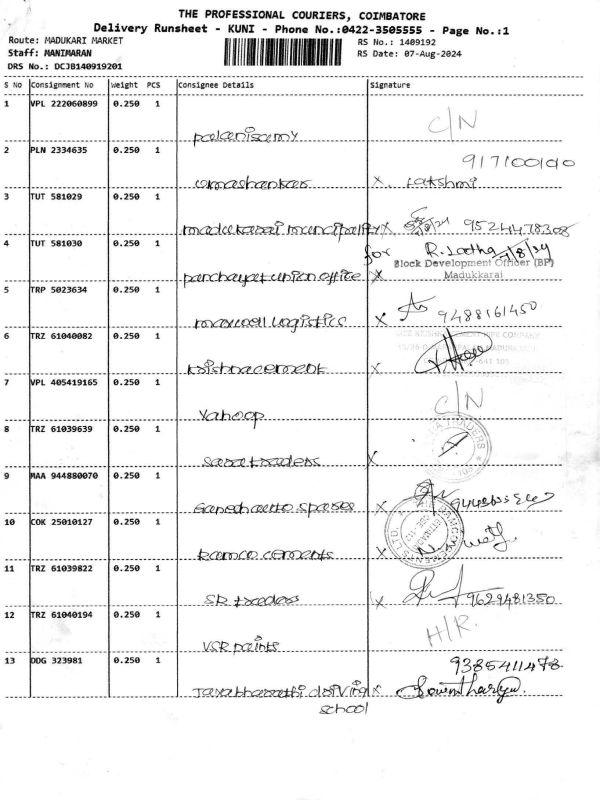 THE PROFESSIONAL COURIERS, COIMBATORE
Delivery Runsheet - KUNI - Phone No.:0422-3505555 - Page No.:1
Route: MADUKARI MARKET
RS No.: 1409192
Staff: MANIMARAN
RS Date: 07-Aug-2024
DRS No.: DCJB140919201
S No Consignment No Weight PCS Consignee Details Signature
1 VPL 222060899 0.250 1
palanisamy C/N
2 PLN 2334635 0.250 1
umashankar X. Lakshmi
3 TUT 581029 0.250 1
madukarai muncipality X 9524478308
4 TUT 581030 0.250 1 for R. Latha 7/8/24
Block Development Officer (BP)
panchayat union office X Madukkarai
5 TRP 5023634 0.250 1
maxwell logistics X 9488161450
6 TRZ 61040082 0.250 1
krishnacement X
7 VPL 405419165 0.250 1
Yahoop C/N
8 TRZ 61039639 0.250 1
TRADERS
sara traders X
9 MAA 944880070 0.250 1
Ganesh auto spares X
10 COK 25010127 0.250 1
Ramco cements X
11 TRZ 61039822 0.250 1
SR traders X 9629481350
12 TRZ 61040194 0.250 1
VSR paints H/R.
13 DDG 323981 0.250 1 9385411478
Jayabharathi driving X
school